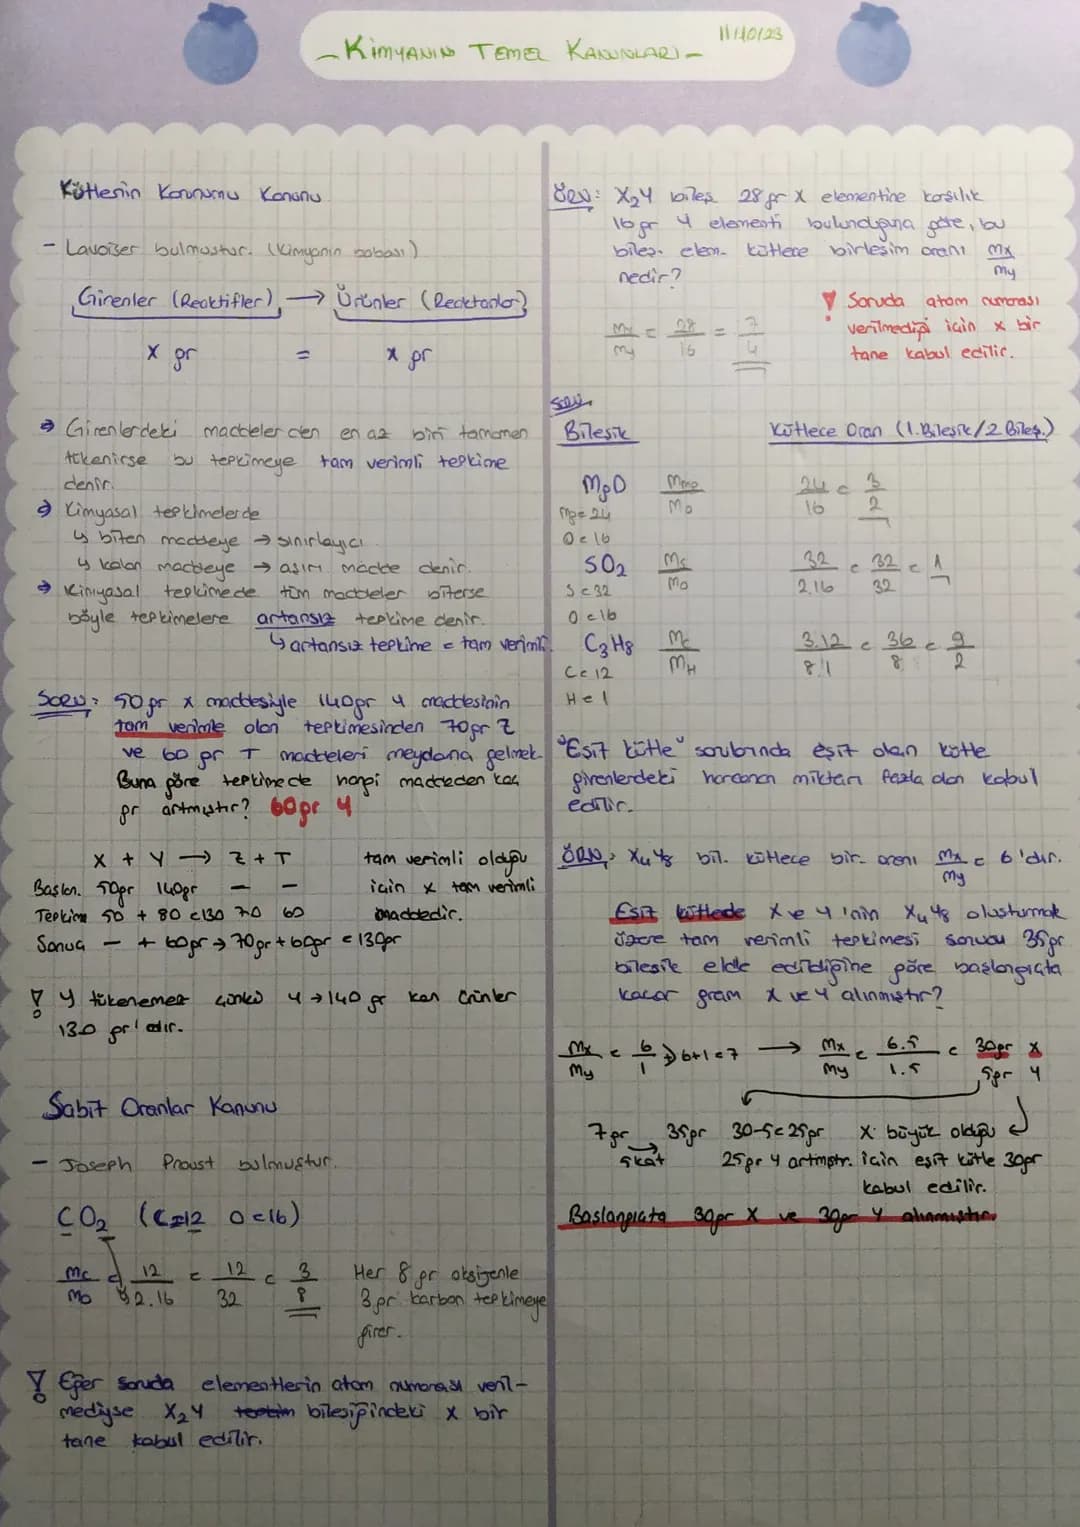 - KİMYANIN TEMEL KANUNLARI -
11/10/23
Kütlenin Korunumu Kanunu
- Lavoiser bulmuştur. (Kimyanın babası)
Girenler (Reaktifler) → Ürünler (Reaktanlar)
x gr = x gr
→ Girenlerdeki maddelerden en az biri tamamen
tükenirse bu tepkimeye tam verimli tepkime
denir.
→ Kimyasal tepkimelerde
↳ biten maddeye → sınırlayıcı
↳ kalan maddeye → aşırı madde denir.
→ Kimyasal tepkimede tüm maddeler biterse
böyle tepkimelere artansız tepkime denir.
↳ artansız tepkime = tam verimli.
SORU: 50 gr x maddesiyle 140gr y maddesinin
tam verimle olan tepkimesinden 70gr Z
ve 60 gr T maddeleri meydana gelmek.
Buna göre tepkimede hangi maddeden kaç
gr artmıştır? 60gr Y
X + Y → Z + T
Başlan. 50gr 140gr - -
Tepkime 50 + 80 = 130 70 60
Sonuç - + 60gr → 70gr + 60gr = 130gr
tam verimli olduğu
için x tam verimli
maddedir.
! y tükenemez çünkü y → 140 gr ken ürünler
130 gr'dır.
Sabit Oranlar Kanunu
- Joseph Proust bulmuştur.
CO2 (C=12 O=16)
mc/mo = 12/2.16 = 12/32 = 3/8
Her 8 gr oksijenle
3 gr karbon tepkimeye
girer.
! Eğer soruda elementlerin atom numarası veril-
mediyse X2Y bileşiğindeki x bir
tane kabul edilir.
ÖRN: X2Y bileş. 28 gr X elementine karşılık
16 gr Y elementi bulunduğuna göre, bu
bileş. elem. kütlece birleşim oranı mx/my
nedir?
mx/my = 28/16 = 7/4
! Soruda atom numarası
verilmediği için x bir
tane kabul edilir.
Soru
Bileşik Kütlece Oran (1.Bileşik/2 Bileş.)
MgO Mmg/Mo 24/16 = 3/2
Mg=24
O=16
SO2 Ms/Mo 32/2.16 = 32/32 = 1
S=32
O=16
C3H8 Mc/MH 3.12/8.1 = 36/8 = 9/2
C=12
H=1
"Eşit kütle" sorularında eşit olan kütle
girenlerdeki harcanan miktarı fazla olan kabul
edilir.
ÖRN: X4Y8 bil. kütlece bir. oranı mx/my = 6'dır.
Eşit kütlede X ve Y'nin X4Y8 oluşturmak
üzere tam verimli tepkimesi sonucu 35gr
bileşik elde edildiğine göre başlangıçta
kaçar gram X ve Y alınmıştır?
Mx/My = 6/1 → 6+1=7 → Mx/My = 6.5/1.5 = 30gr X/5gr Y
7gr 35gr 30-5=25gr X büyük olduğu
5kat 25gr Y artmıştır. için eşit kütle 30gr
kabul edilir.
Başlangıçta 30gr X ve 30gr Y alınmıştır.